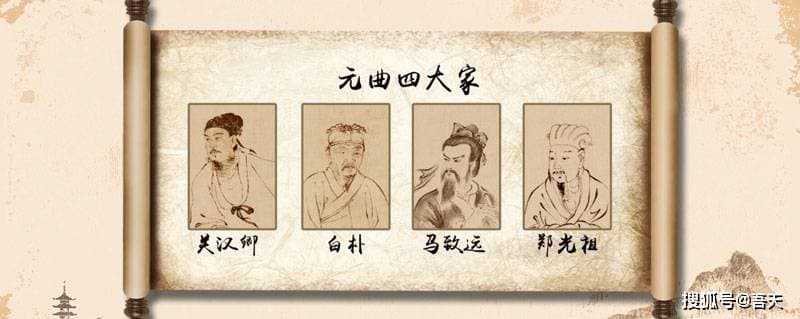 元曲四大家
关汉卿 白朴 马致远 郑光祖
搜狐号@吾天